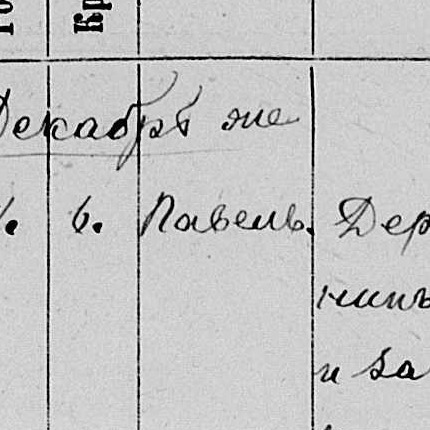 Декабрь же
6. Павелъ. Дер
нинъ
и за